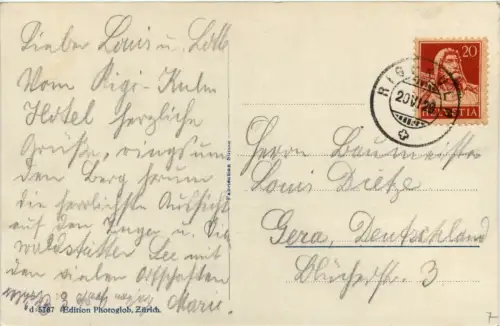 Lieber Louis u. Lotte
Vom Rigi-Kulm
Hotel herzliche
Grüße, ringsum
den Berg herum
die herrlichste Aussicht
auf den Zuger u. Vier
waldstätter See mit
den vielen Ortschaften
Marie.
d 5767 Edition Photoglob, Zürich.
20
HELVETIA
RIGI
20 VI 26
Herrn Baumeister
Louis Dietze
Gera, Deutschland
Blücherstr. 3
7